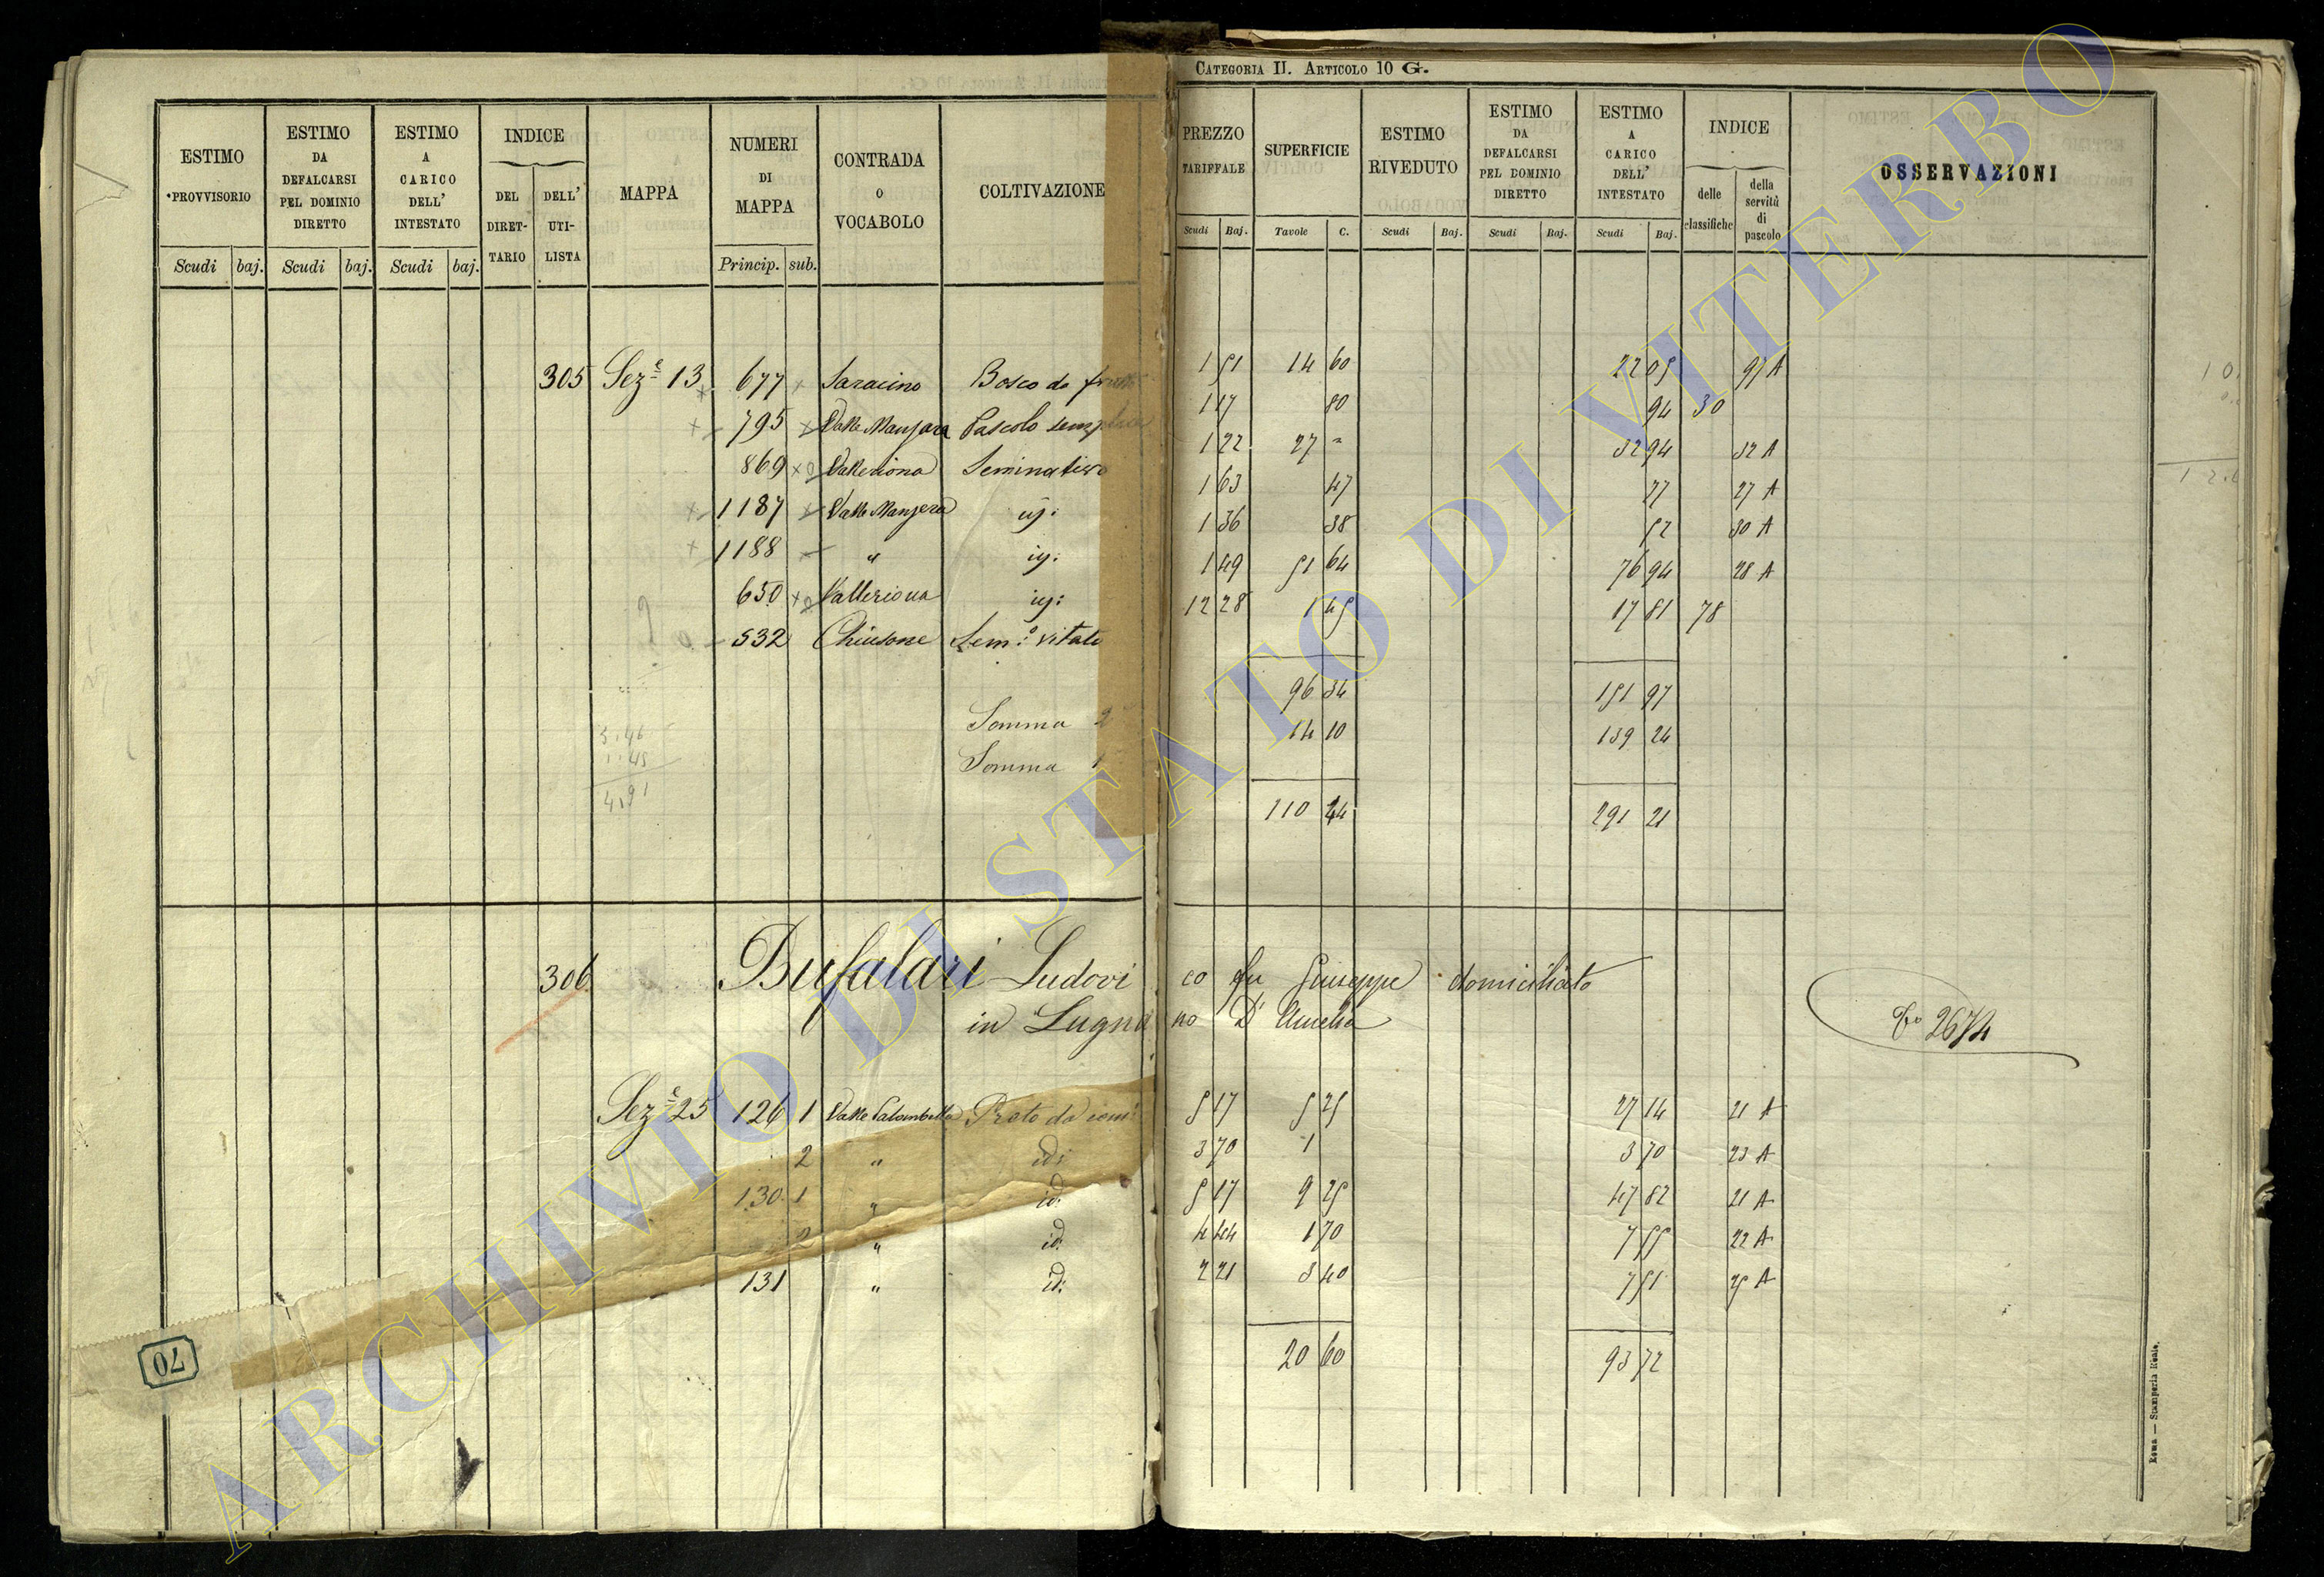 CATEGORIA II. ARTICOLO 10 G.
ESTIMO PROVVISORIO
ESTIMO DA DEFALCARSI PEL DOMINIO DIRETTO
ESTIMO A CARICO DELL' INTESTATO
INDICE
DEL DIRET-TARIO
DELL' UTI-LISTA
MAPPA
NUMERI DI MAPPA
CONTRADA O VOCABOLO
COLTIVAZIONE
PREZZO TARIFFALE
SUPERFICIE
ESTIMO RIVEDUTO
ESTIMO DA DEFALCARSI PEL DOMINIO DIRETTO
ESTIMO A CARICO DELL' INTESTATO
INDICE
delle classifiche
della servitù di pascolo
OSSERVAZIONI
Scudi baj. Scudi baj. Scudi baj. Princip. sub.
Scudi Baj. Tavole C. Scudi Baj. Scudi Baj. Scudi Baj.
305 Sez.e 13 677 Saracino Bosco da 1 51 14 60 22 05 97 A
795 Valle Manjara Pascolo 1 17 80 94 30
869 Valleriona Seminativo 1 22 27 " 32 94 32 A
1187 Valle Manjera 1 63 47 77 27 A
1188 " 1 36 38 52 30 A
650 Valleriona 1 49 51 64 76 94 28 A
532 Chiusone Sem.o vitato 12 28 1 45 17 81 78
96 34 151 97
Somma 2 14 10 139 24
Somma 1
110 44 291 21
3.46
1.45
4.91
306 Bufalari Ludovico fu Giuseppe domiciliato
in Lugnano D'Amelia
2674
Sez.e 25 126 1 Valle Palombella Prato da 5 17 5 25 27 14 21 A
2 " id: 3 70 1 3 70 23 A
130 1 " id: 5 17 9 25 47 82 21 A
2 " id: 4 44 1 70 7 55 22 A
131 " id: 2 21 3 40 7 51 25 A
20 60 93 72
70
Roma — Stamperia Reale.
ARCHIVIO DI STATO DI VITERBO